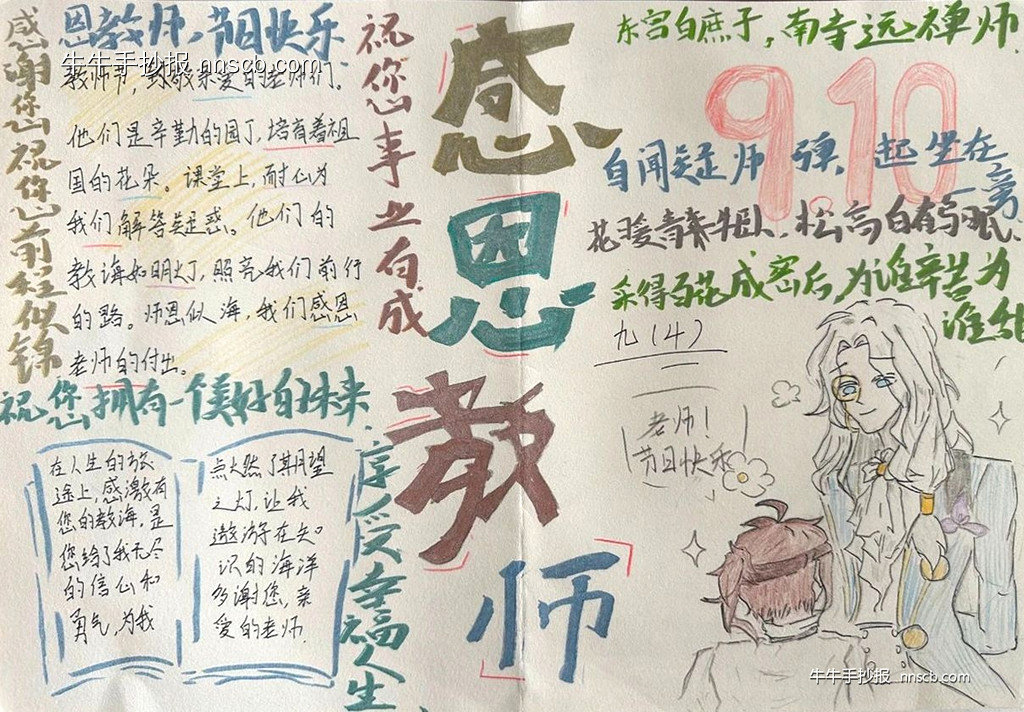 感谢您祝你前程似锦
恩教师,节日快乐
牛牛手抄报 nnscb.com
教师节,致敬亲爱的老师们。
他们是辛勤的园丁,培育着祖
国的花朵。课堂上,耐心为
我们解答疑惑。他们的
教诲如明灯,照亮我们前行
的路。师恩似海,我们感恩
老师的付出。
祝您事业有成
祝您拥有一个美好的未来
在人生的旅
途上,感激有
您的教诲,是
您给了我无尽
的信心和
勇气,为我
点燃了期望
之灯,让我
遨游在知
识的海洋
多谢您,亲
爱的老师.
享受幸福人生
感恩教师
东宫白庶子,南寺远禅师.
9.10
自闻疑师
起坐在
一旁
花暖青牛卧,松高白鹤眠.
采得百花成密后,为谁辛苦为
谁甜
九(4)
老师!
节日快乐
牛牛手抄报 nnscb.com